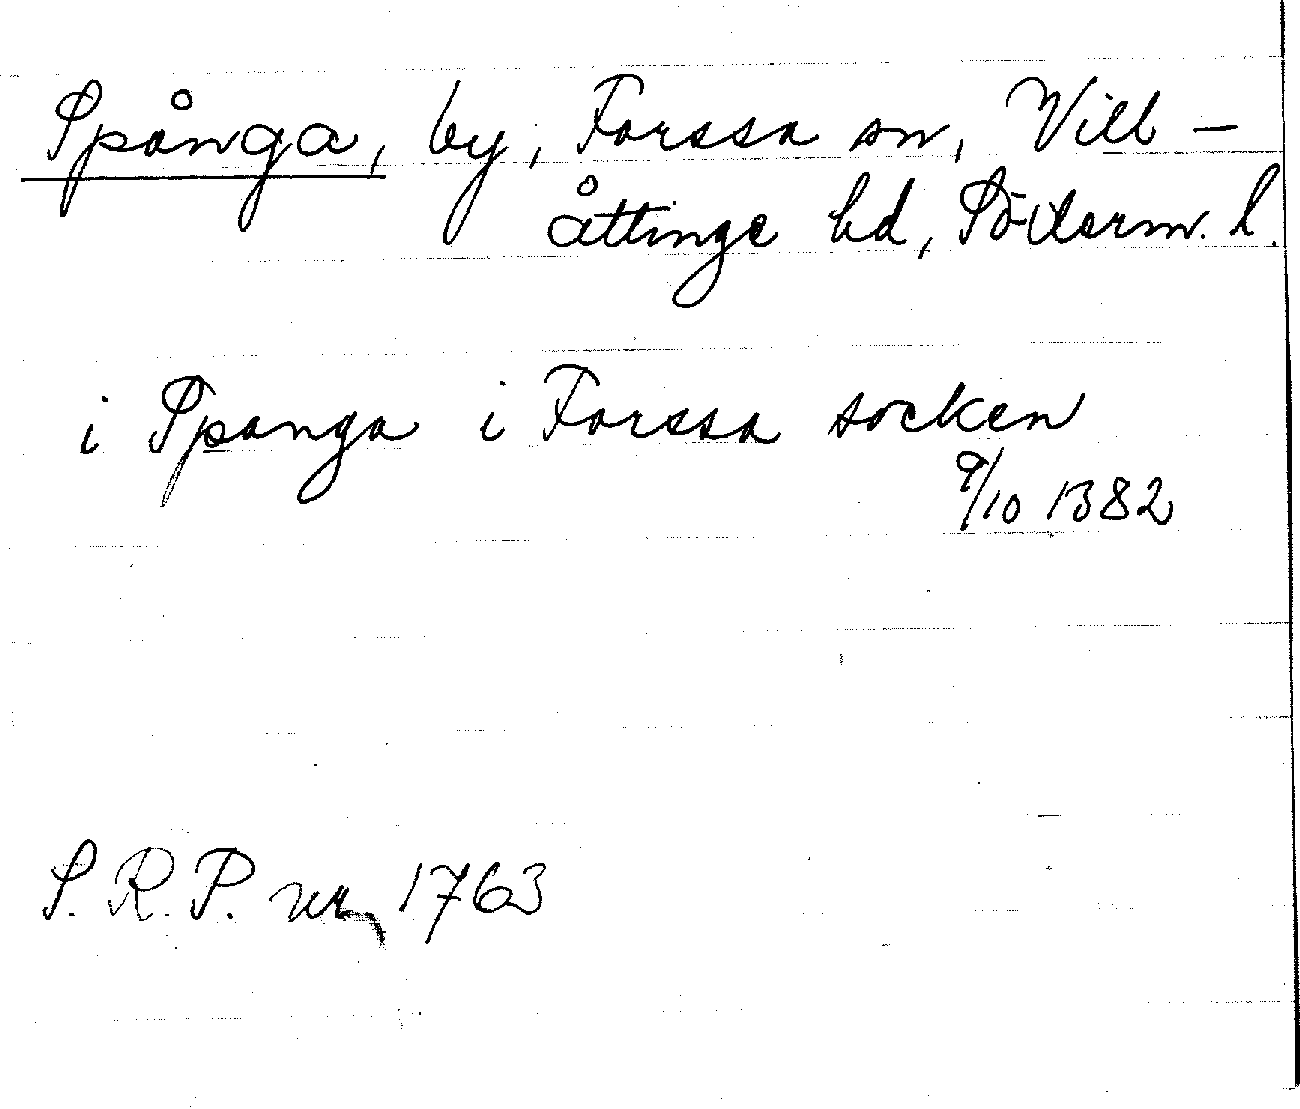 Spånga, by, Forssa sn, Vill-
åttinge hd, Söderm. l.
i Spanga i Forssa socken
9/10 1382
S.R.P. nr 1763